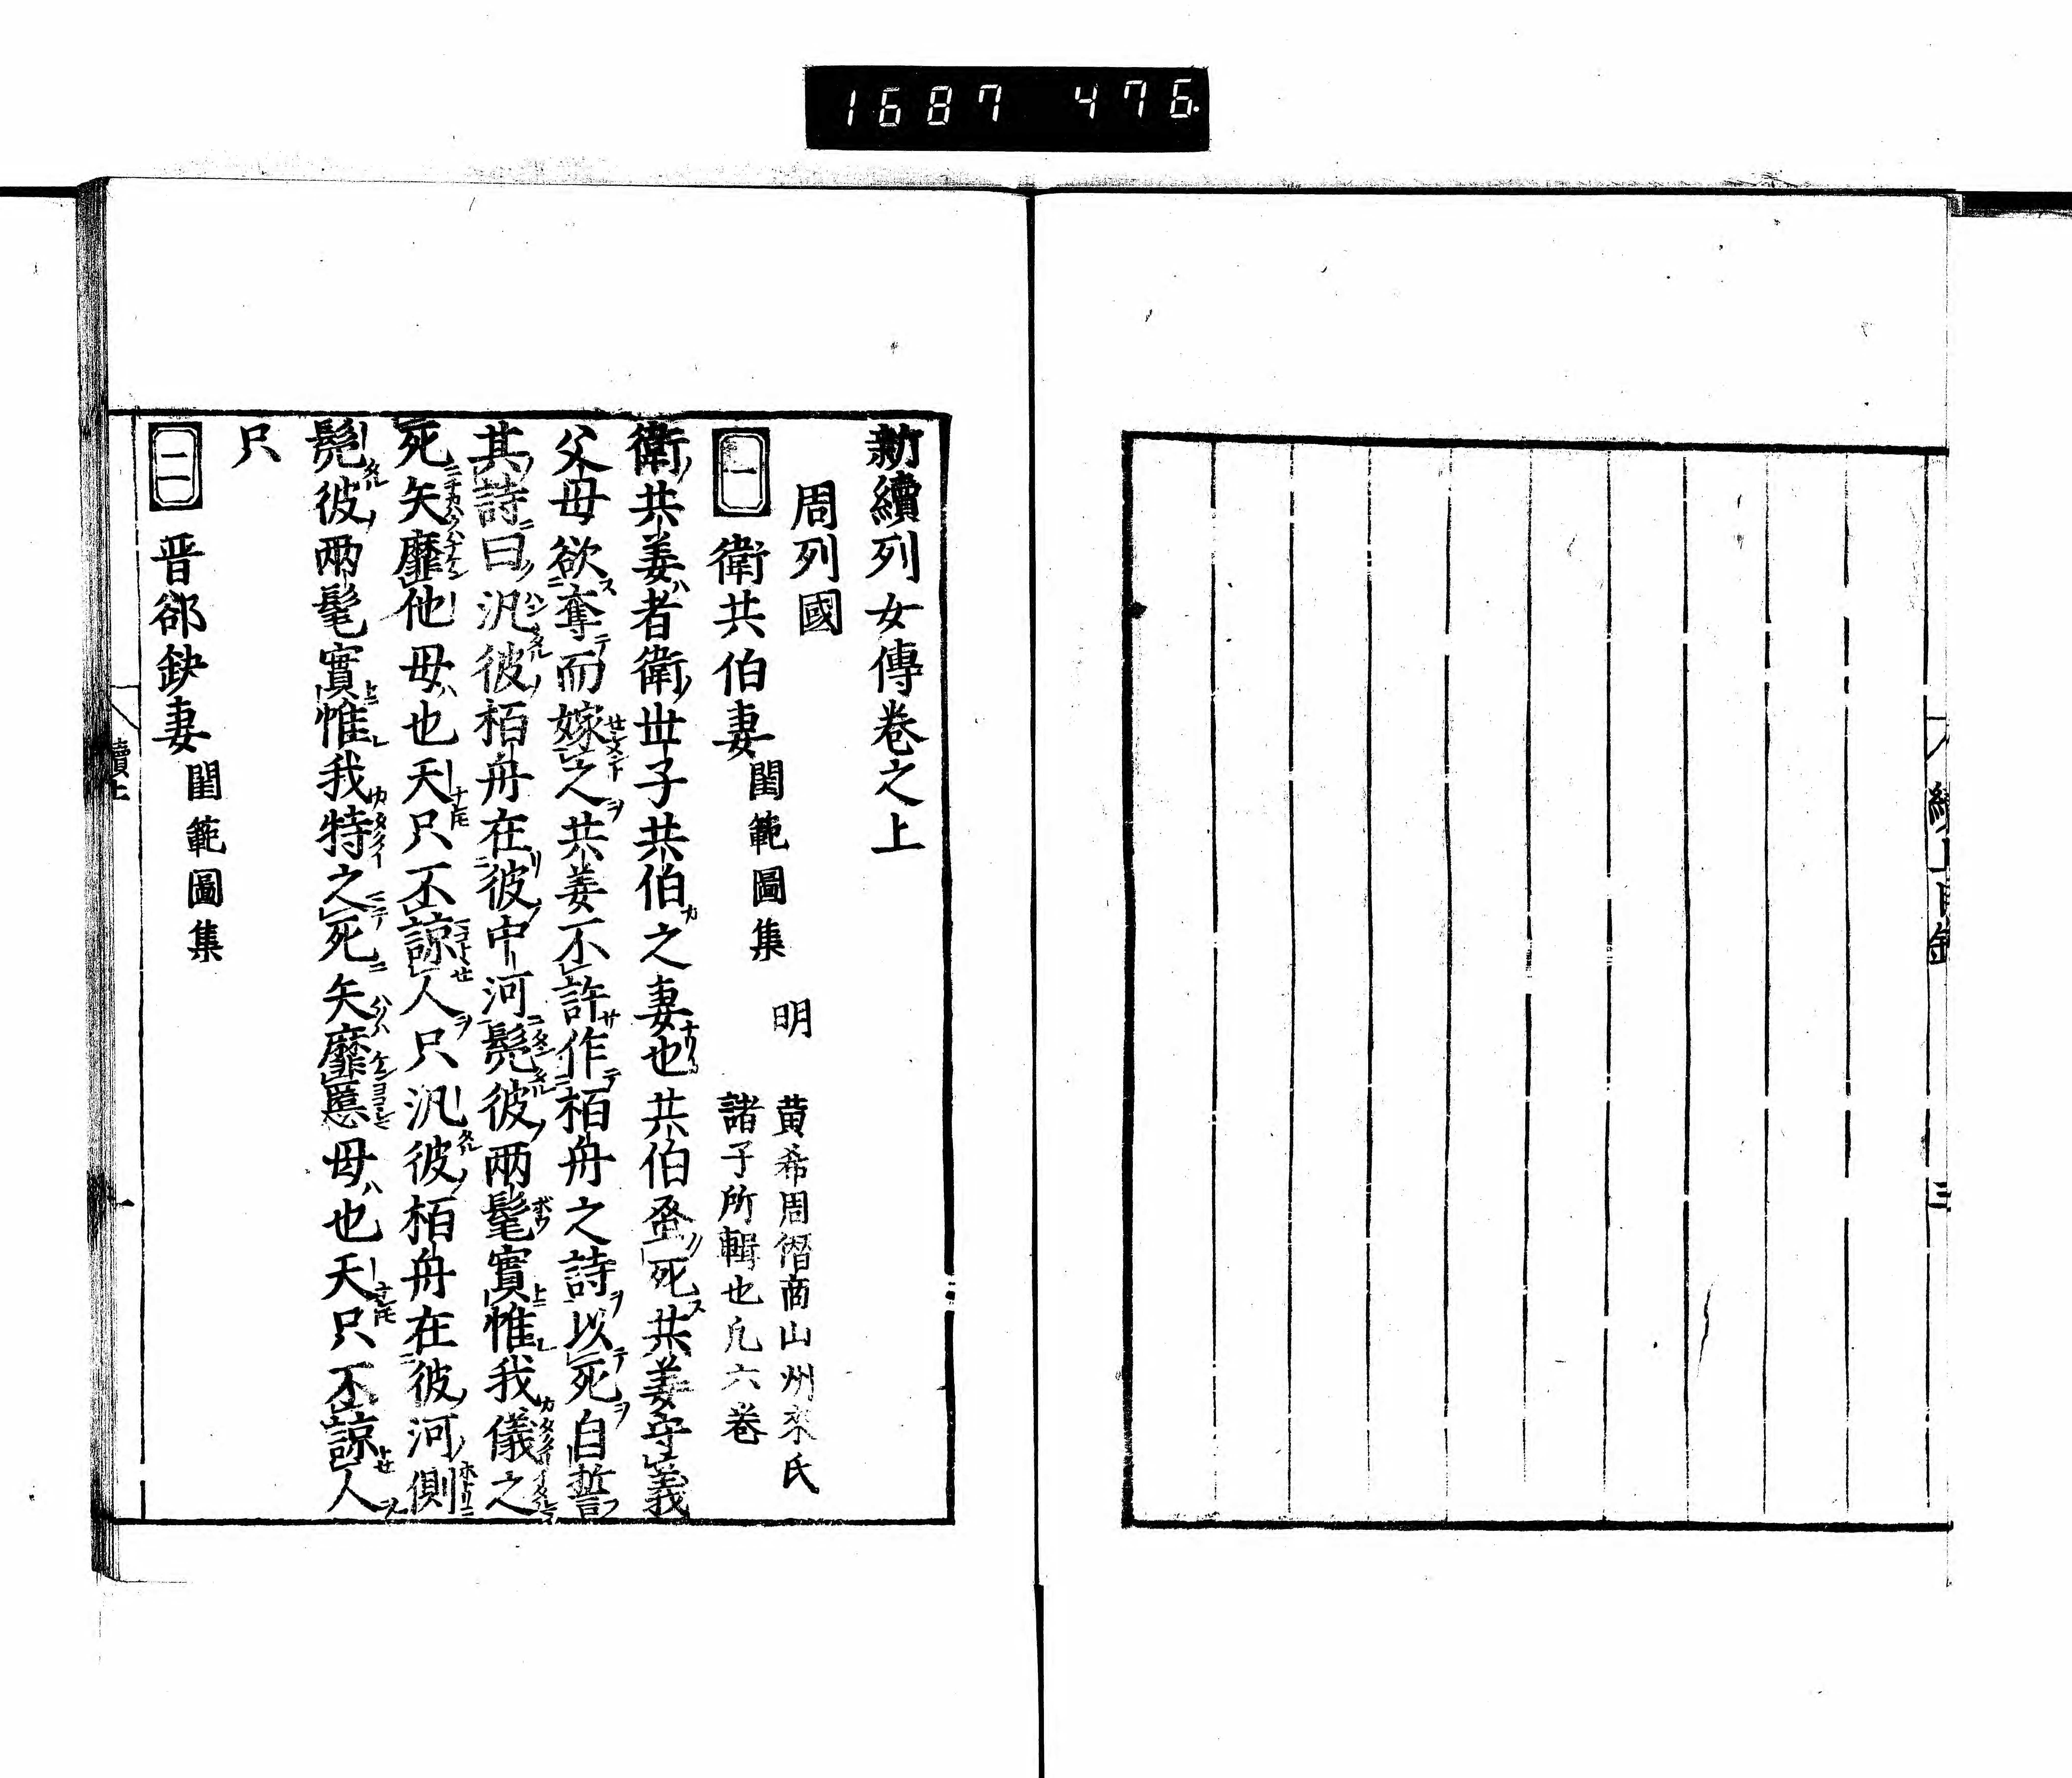 1687 476
新續列女傳卷之上
周列國
一 衛共伯妻 閨範圖集 明 黄希周僭商山州來氏
諸子所輯也凢六卷
衛共姜者衛世子共伯之妻也共伯蚤死共姜守義
父母欲奪而嫁之共姜不許作栢舟之詩以死自誓
其詩曰汎彼栢舟在彼中河髧彼兩髦實惟我儀之
死矢靡他母也天只不諒人只汎彼栢舟在彼河側
髧彼兩髦實惟我特之死矢靡慝母也天只不諒人
只
二 晋郤缺妻 閨範圖集
續上
一
三